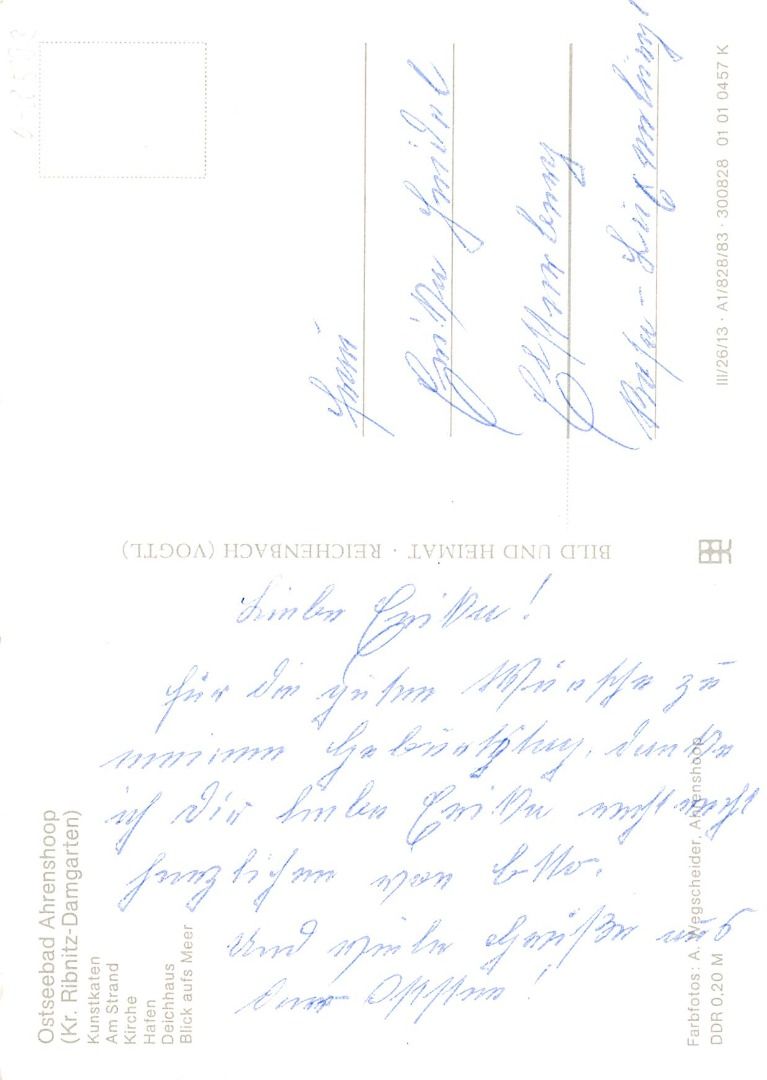 Ostseebad Ahrenshoop
(Kr. Ribnitz-Damgarten)
Kunstkaten
Am Strand
Kirche
Hafen
Deichhaus
Blick aufs Meer
Liebe Erika!
für die guten Wünsche zu
meinem Geburtstag, danke
ich dir liebe Erika recht recht
herzlichen von Otto.
und viele Grüße aus
der Ostsee!
Farbfotos: A. Wegscheider, Ahrenshoop
DDR 0.20 M
BILD UND HEIMAT · REICHENBACH (VOGTL)
Frau
Erika
III/26/13 · A1/828/83 · 300828 01 01 0457 K